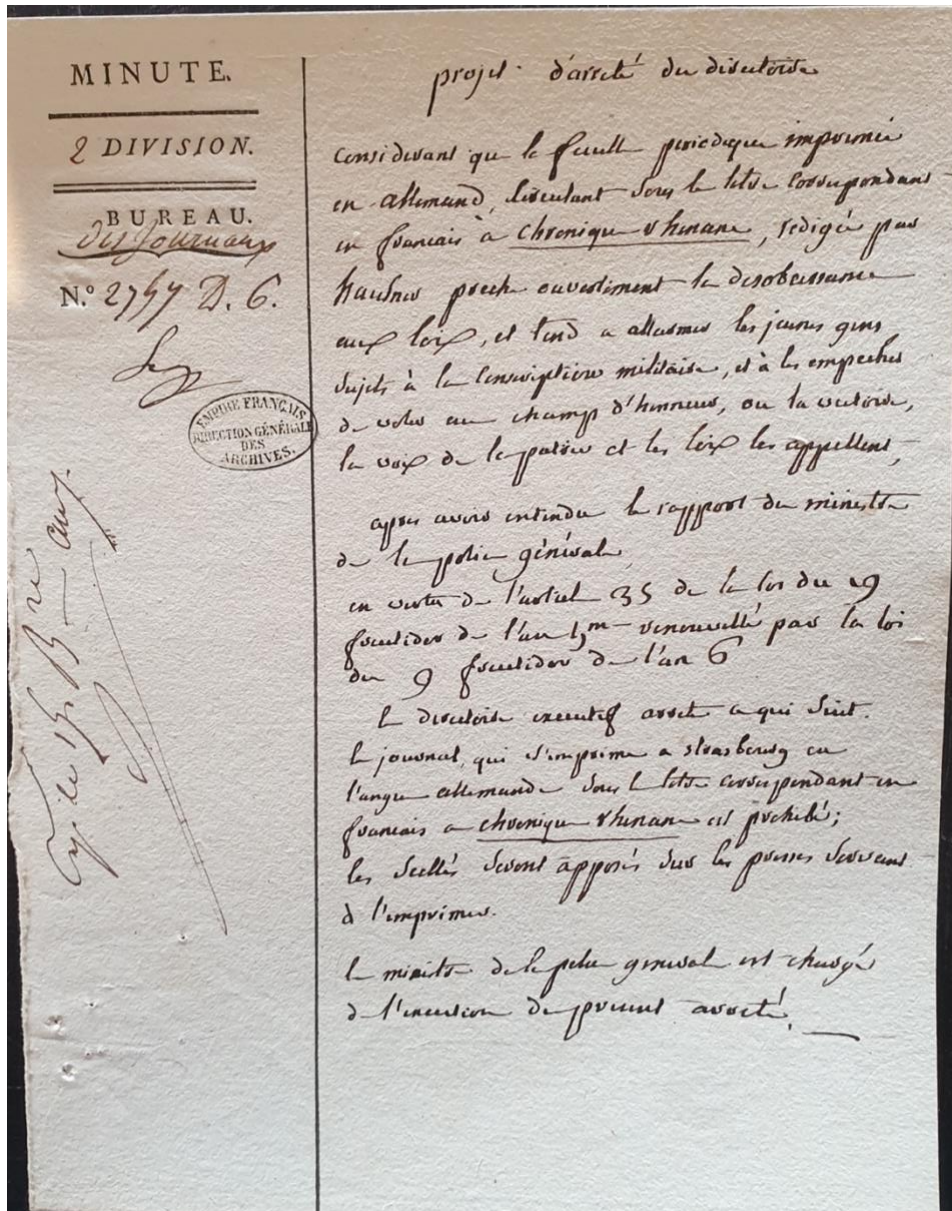 MINUTE.
2 DIVISION.
BUREAU.
des Journaux
N.º 2747 D. 6.
EMPIRE FRANÇAIS
DIRECTION GÉNÉRALE
DES
ARCHIVES.
projet d'arreté du directoire
Considerant que la feuille periodique imprimée
en allemand, circulant sous le titre correspondant
en francais à chronique rhenane, redigée par
preche ouvertement la desobeissance
aux loix, et tend a allarmer les jeunes gens
sujets à la conscription militaire, et à les empecher
de voler au champ d'honneur, ou la victoire,
la voix de la patrie et les loix les appellent,
apres avoir entendu le rapport du ministre
de la police générale,
en vertu de l'article 35 de la loi du 19
fructidor de l'an 5me renouvellé par la loi
du 9 fructidor de l'an 6
le directoire executif arrete ce qui suit.
le journal, qui s'imprime a strasbourg en
langue allemande sous le titre correspondant en
francais a chronique rhenane est prohibé;
les scellés seront apposés sur les presses servant
à l'imprimer.
le ministre de la police generale est chargé
de l'execution du present arreté.